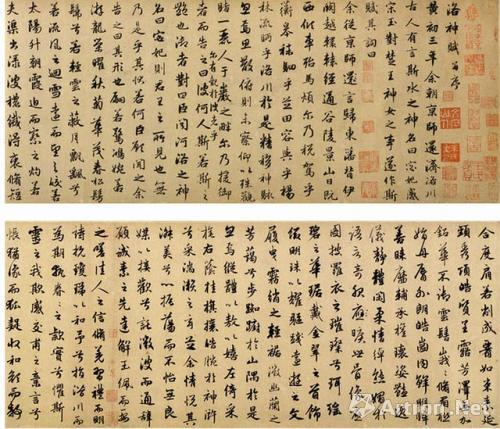 洛神賦并序
黃初三年余朝京師還濟洛川
古人有言斯水之神名曰宓妃感
宋玉對楚王神女之事遂作斯
賦其詞曰
余從京師還言歸東藩背伊
闕越轘轅經通谷陵景山日既
西傾車殆馬煩爾乃稅駕乎
蘅皋秣駟乎芝田容與乎楊
林流眄乎洛川於是精移神駭
忽焉思散俯則未察仰以殊觀
睹一麗人于巖之畔爾乃援御
者而告之曰爾有覿於彼者乎彼何人斯若斯之
豔也御者對曰臣聞河洛之神
名曰宓妃則君王之所見也無
乃是乎其狀若何臣願聞之余
告之曰其形也翩若驚鴻婉若
游龍榮曜秋菊華茂春松髣
髴兮若輕雲之蔽月飄飄兮
若流風之迴雪遠而望之皎若
太陽升朝霞迫而察之灼若
夫渠出淥波穠纖得衷脩短
合度肩若削成腰如束素延
頸秀項皓質呈露芳澤無加
鉛華不御雲髻峨峨脩眉聯
娟丹脣外朗皓齒內鮮明眸
善睞靨輔承權瓌姿豔逸
儀靜體閑柔情綽態媚於
語言奇服曠世骨像應
圖披羅衣之璀璨兮珥瑤
碧之華琚戴金翠之首飾
綴明珠以耀軀踐遠遊之文
履曳霧綃之輕裾微幽蘭之
芳藹兮步踟躕於山隅於是
忽焉縱體以遨以嬉左倚采
旄右蔭桂旗攘皓腕於神滸
兮采湍瀨之玄芝余情悅其
淑美兮心振蕩而不怡無良
媒以接歡兮託微波而通辭
願誠素之先達解玉佩而要
之嗟佳人之信脩羌習禮而明
詩抗瓊珶以和予兮指潛川而
為期執眷眷之款實兮懼斯
靈之我欺感交甫之棄言兮
悵猶豫而狐疑收和顏而靜
Artron.Net